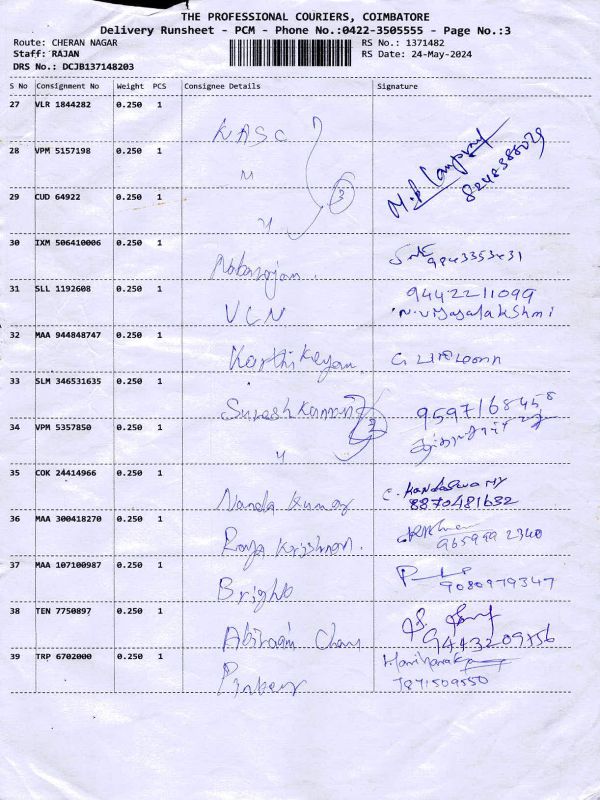 THE PROFESSIONAL COURIERS, COIMBATORE
Delivery Runsheet - PCM - Phone No.:0422-3505555 - Page No.:3
Route: CHERAN NAGAR RS No.: 1371482
Staff: RAJAN RS Date: 24-May-2024
DRS No.: DCJB137148203
S No Consignment No Weight PCS Consignee Details Signature
27 VLR 1844282 0.250 1
KASC
28 VPM 5157198 0.250 1
8248388029
29 CUD 64922 0.250 1
3
30 IXM 506410006 0.250 1
9843353431
31 SLL 1192608 0.250 1 9442211099
VCN N.Vijayalakshmi
32 MAA 944848747 0.250 1
Karthikeyan
33 SLM 346531635 0.250 1
Suresh Kannan 9597168458
34 VPM 5357850 0.250 1
2
35 COK 24414966 0.250 1
Nanda Kumar C. Kandaswamy
8870481632
36 MAA 300418270 0.250 1
Raja Krishnan. 965999 2340
37 MAA 107100987 0.250 1
Bright 9080979347
38 TEN 7750897 0.250 1
Abiraami 9443209756
39 TRP 6702000 0.250 1
7871509550